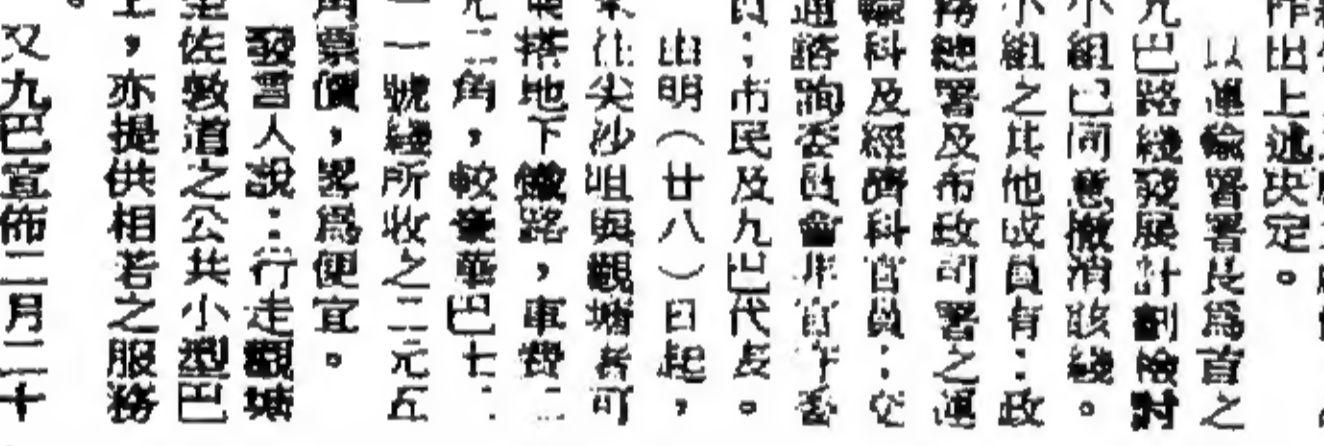 作出上述決定。
以運輸署署長爲首之
九巴路綫發展計劃檢討
小組已同意撤消該綫。
小組之其他成員有：政
務總署及布政司署之運
輸科及經濟科官員；交
通諮詢委員會非官守委
員；市民及九巴代表。
由明（廿八）日起，
往尖沙咀與觀塘者可
搭地下鐵路，車費二
元二角，較乘華巴七：
一一號綫所收之二元五
角票價，畧爲便宜。
發言人說：行走觀塘
至佐敦道之公共小型巴
士，亦提供相若之服務
。
又九巴宣佈二月二十